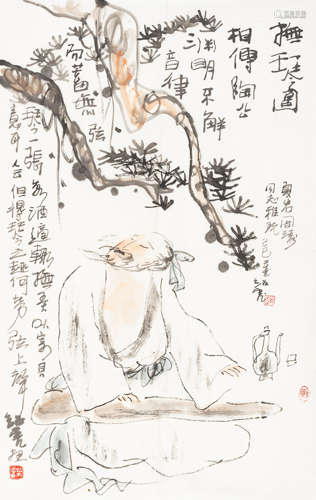 撫琴圖
相傳陶公
淵明不解
音律
而蓄無弦
琴一張每酒適輒撫弄以寄其
意耳 但得琴之趣何勞弦上聲
同志雅玩